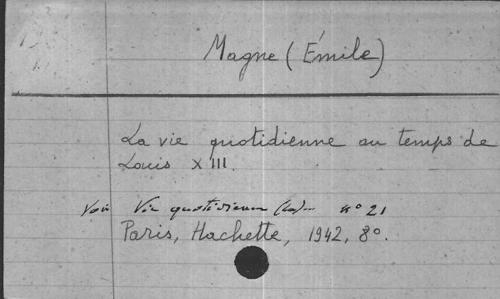 Magne (Émile)
La vie quotidienne au temps de
Louis XIII.
Voir Vie quotidienne (La)— n° 21
Paris, Hachette, 1942, 8°.